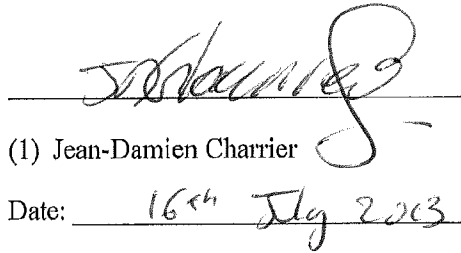 (1) Jean-Damien Charrier
Date: 16th July 2013